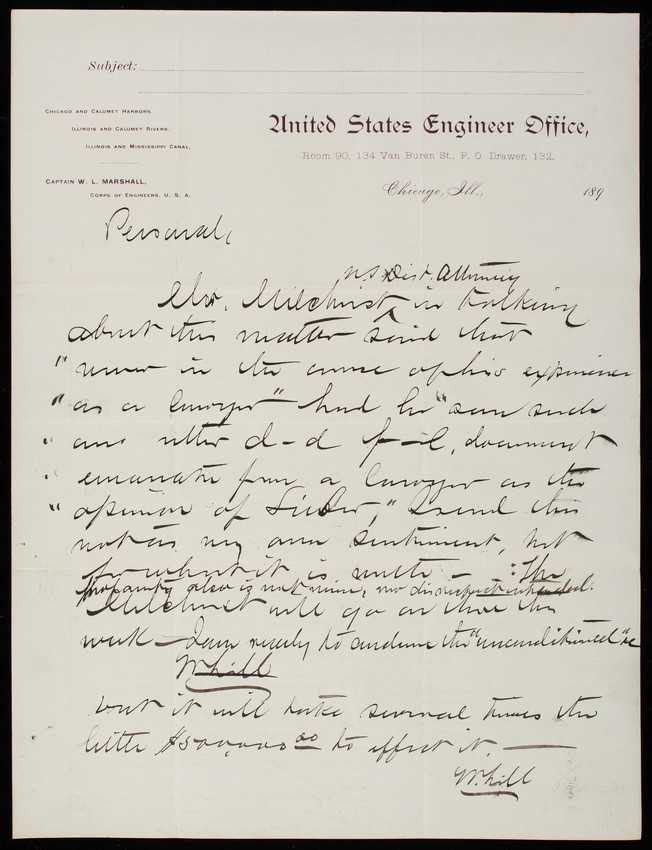 Subject:
CHICAGO AND CALUMET HARBORS.
ILLINOIS AND CALUMET RIVERS.
ILLINOIS AND MISSISSIPPI CANAL.
CAPTAIN W. L. MARSHALL,
CORPS OF ENGINEERS, U. S. A.
United States Engineer Office,
Room 90, 134 Van Buren St., P. O. Drawer, 132.
Chicago, Ill., 189
Personal,
U.S. Dist. Attorney
Mr. Milchrist in talking
about this matter said that
"never in the course of his experience
"as a lawyer" had he "seen such
an utter d-d f-l, document
emanate from a lawyer as the
"opinion of" I send this
not as my own sentiment, but
for what it is worth - : The
profanity also is not mine, no disrespect intended.
Milchrist will go on the
work - I am ready to the "unconditional"
W.L.M
but it will take several times the
little $500,000.00 to effect it. —
W.L.M